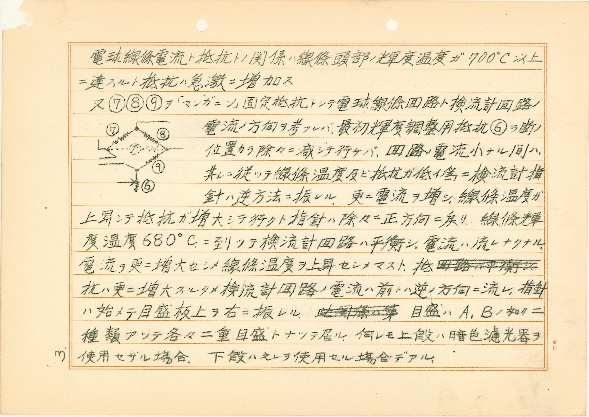 電球線條電流ト抵抗トノ関係ハ線條頭部ノ輝度温度ガ700°C以上
ニ達スルト抵抗ハ急激ニ増加ス
又⑦⑧⑨ヲ「マンガニン」固定抵抗トシテ電球線條回路ト検流計回路ノ
電流ノ方向ヲ考フレバ、最初輝度調整用抵抗⑥ヲ断ノ
位置カラ除々ニ減ジテ行ケバ、回路ノ電流小ナル間ハ、
夫レニ従ツテ線條温度及ビ抵抗ガ低イ為ニ検流計指
針ハ逆方法ニ振レル、更ニ電流ヲ増シ、線條温度ガ
上昇シテ抵抗ガ増大シテ行クト指針ハ除々ニ正方向ニ戻リ、線條輝
度温度680°Cニ到ツテ検流計回路ハ平衡シ、電流ハ流レナクナル、
電流ヲ更ニ増大セシメ線條温度ヲ上昇セシメマスト、抵
抗ハ更ニ増大スルタメ検流計回路ノ電流ハ前トハ逆ノ方向ニ流レ、指針
ハ始メテ目盛板上ヲ右ニ振レル、目盛ハA,Bノ二
種類アツテ各々二重目盛トナツテ居ル、何レモ上段ハ暗色濾光器ヲ
使用セザル場合、下段ハソレヲ使用セル場合デアル、
⑦
⑧
⑨
⑥